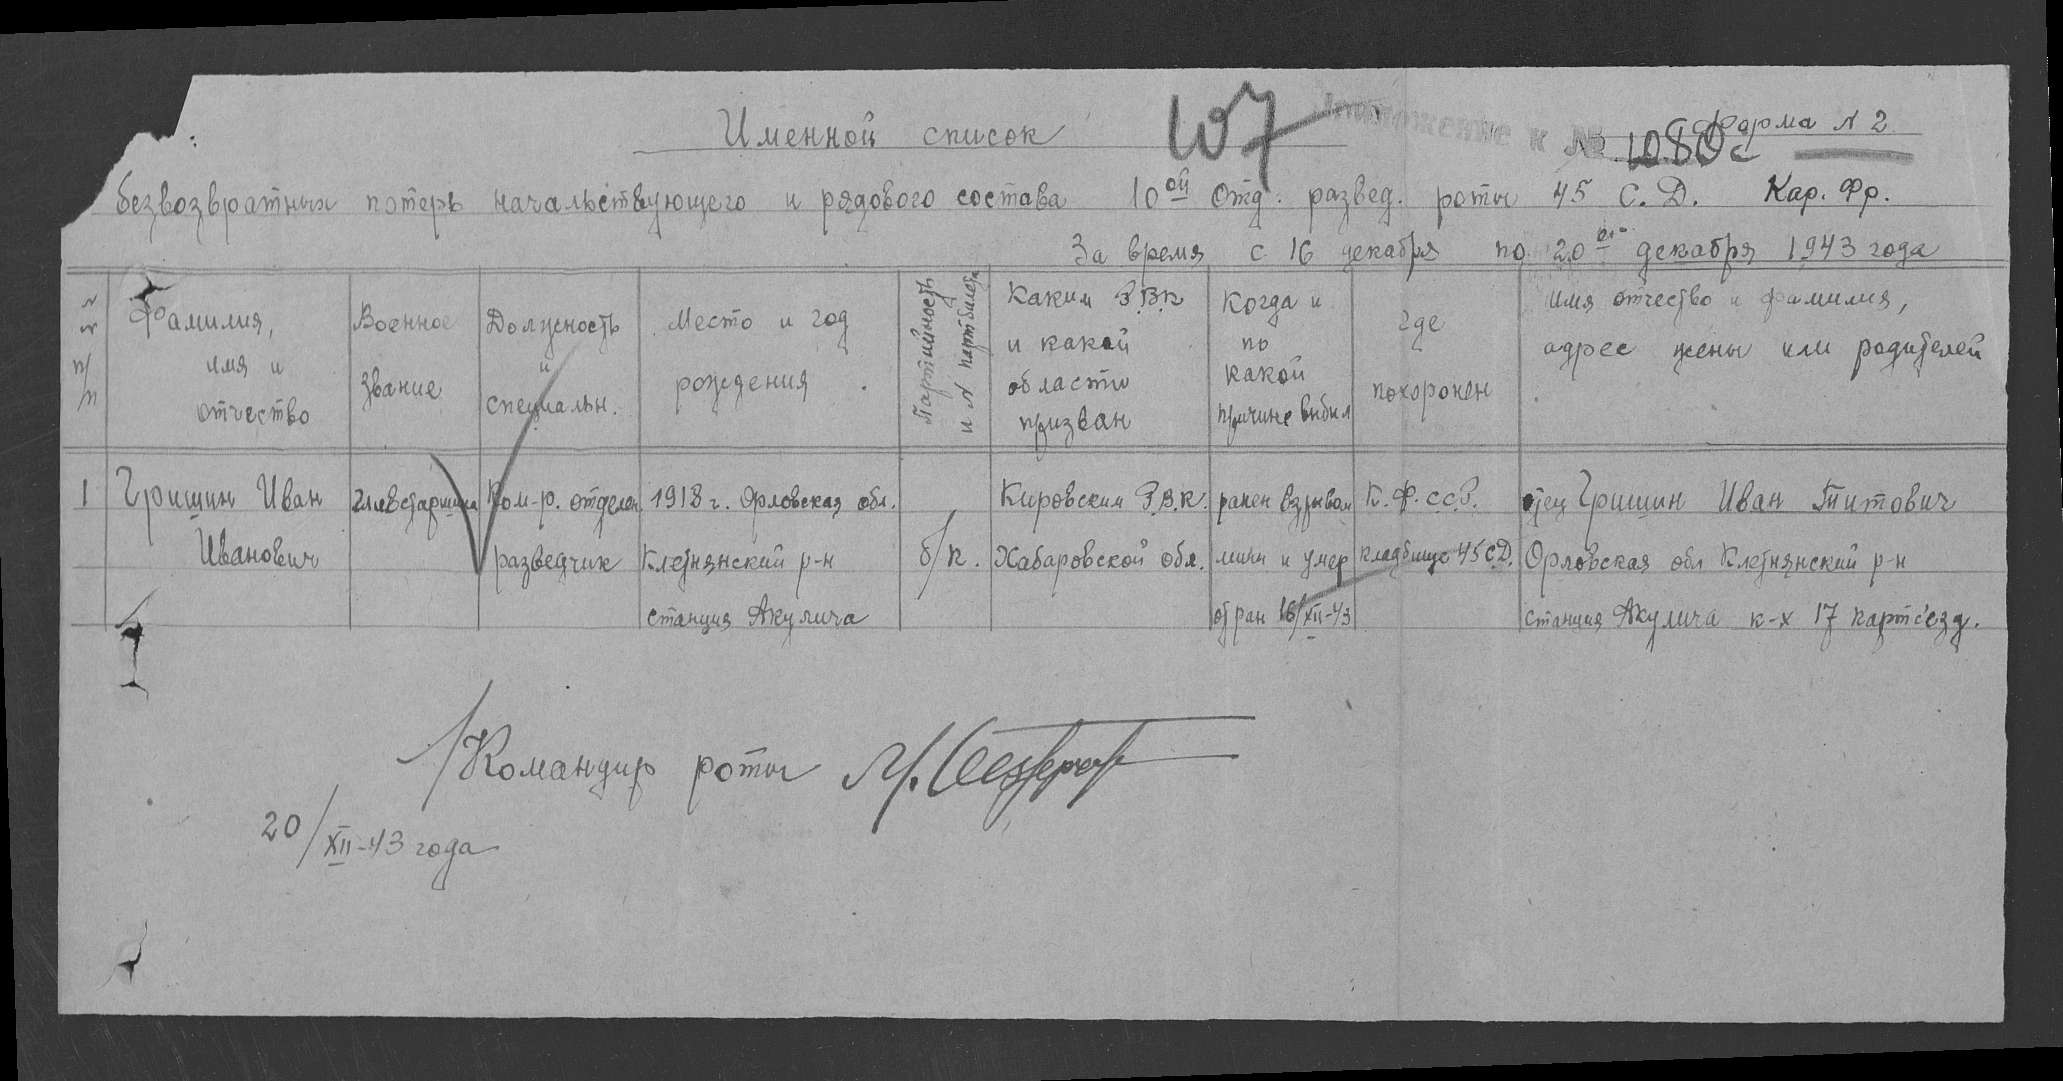 Именной список
107
Приложение к № 1080с
Форма N 2
безвозвратных потерь начальствующего и рядового состава 10ой отд. развед. роты 45 С.Д. Кар. Фр.
За время с 16 декабря по 20ое декабря 1943 года
N N п/п
Фамилия, имя и отчество
Военное звание
Должность и специальн.
Место и год рождения
Партийность и N партбилета
Каким Р.В.К и какой области призван
Когда и по какой причине выбыл
где похоронен
имя отчество и фамилия, адрес жены или родителей
1 Гришин Иван главстаршина Ком-р. отделен. 1918 г. Орловская обл. Кировским Р.В.К. ранен взрывом К.Ф.ССР. отец Гришин Иван Титович
Иванович разведчик Клетнянский р-н б/п. Хабаровской обл. мины и умер кладбище 45 С.Д. Орловская обл Клетнянский р-н
станция Акулича от ран 16/XII-43 станция Акулича к-х 17 партс'езд.
Командир роты
20/XII-43 года